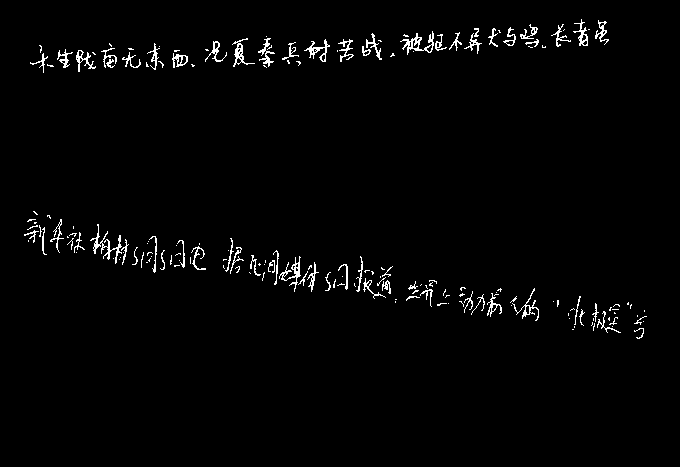 禾生陇亩无东西,况复秦兵耐苦战,被驱不异犬与鸡,长者虽
新华社柏林5月5日电 据此间媒体5日报道,世界上动力最大的“北极”号